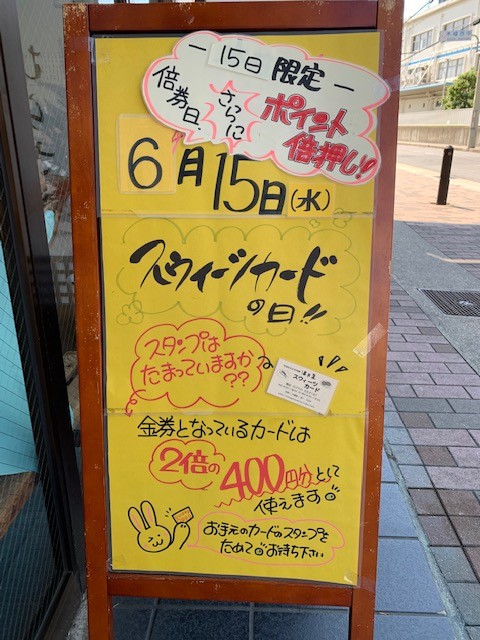 ー15日 限定ー
倍券日
さらに
ポイント
倍押し!!
6月15日(水)
スウィーツカード
の日!!
スタンプは
たまっていますか
??
スウィーツ
カード
金券となっているカードは
2倍の400円分として
使えます
お手元のカードのスタンプを
ためてお待ち下さい